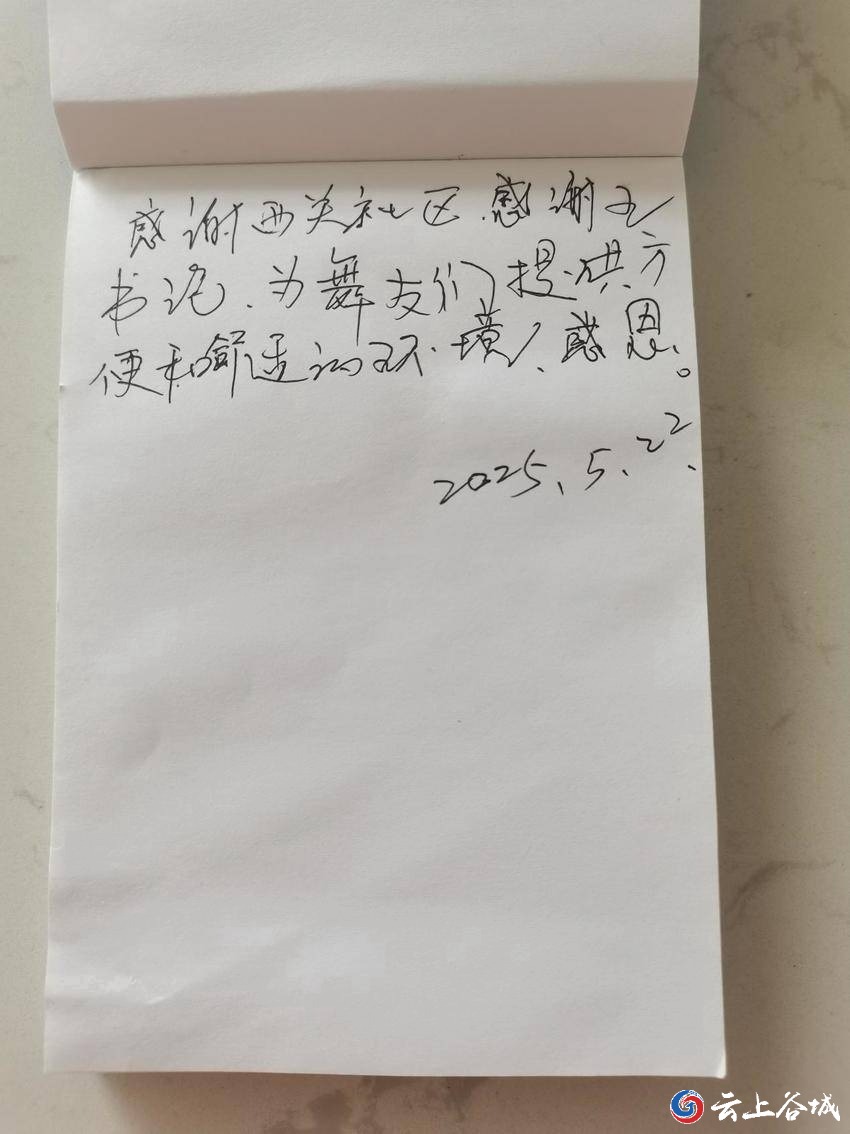 感谢西关社区.感谢王
书记.为舞友们提供方
便和舒适的环境、感恩。
2025.5.22.
云上谷城